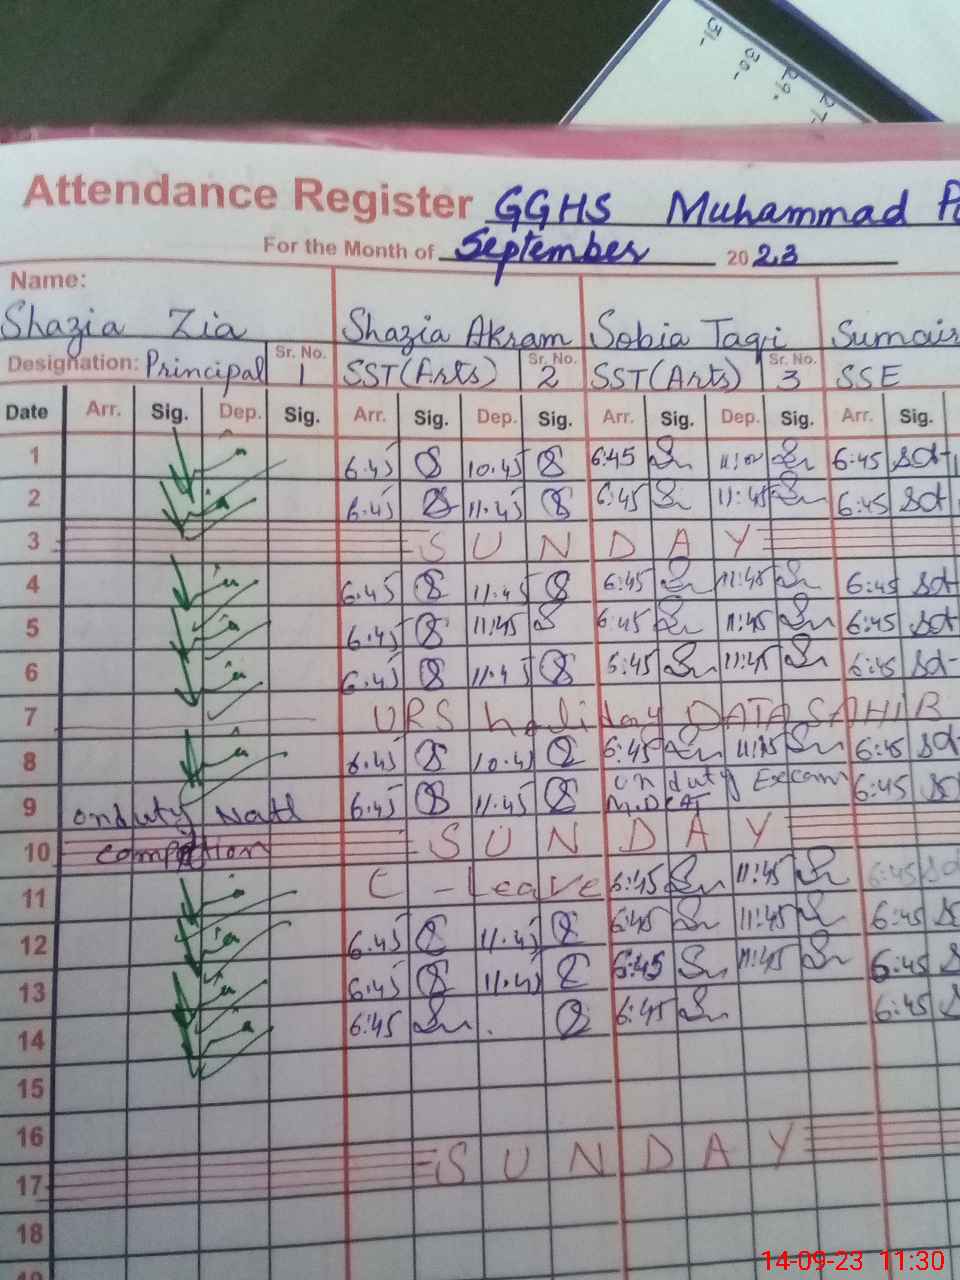 Attendance Register GGHS Muhammad
For the Month of September 2023
Name:
Shazia Zia Shazia Akram Sobia Taqi Sumair
Designation: Principal Sr. No. 1 SST (Arts) Sr. No. 2 SST (Arts) Sr. No. 3 SSE
Date Arr. Sig. Dep. Sig. Arr. Sig. Dep. Sig. Arr. Sig. Dep. Sig. Arr. Sig.
1 6:45 10:45 6:45 6:45
2 6:45 11:45 6:45 11:45 6:45
3 SUNDAY
4 6:45 11:45 6:45 11:45 6:45
5 6:45 11:45 6:45 11:45 6:45
6 6:45 11:45 6:45 11:45 6:45
7 URS holiday DATA SAHIB
8 6:45 10:45 6:45 6:45
9 onduty Natl 6:45 11:45 on duty Exam 6:45
10 SUNDAY
11 C-Leave 6:45 11:45 6:45
12 6:45 11:45 6:45 11:45 6:45
13 6:45 11:45 6:45 11:45 6:45
14 6:45 6:45 6:45
15
16
17 SUNDAY
18
14-09-23 11:30